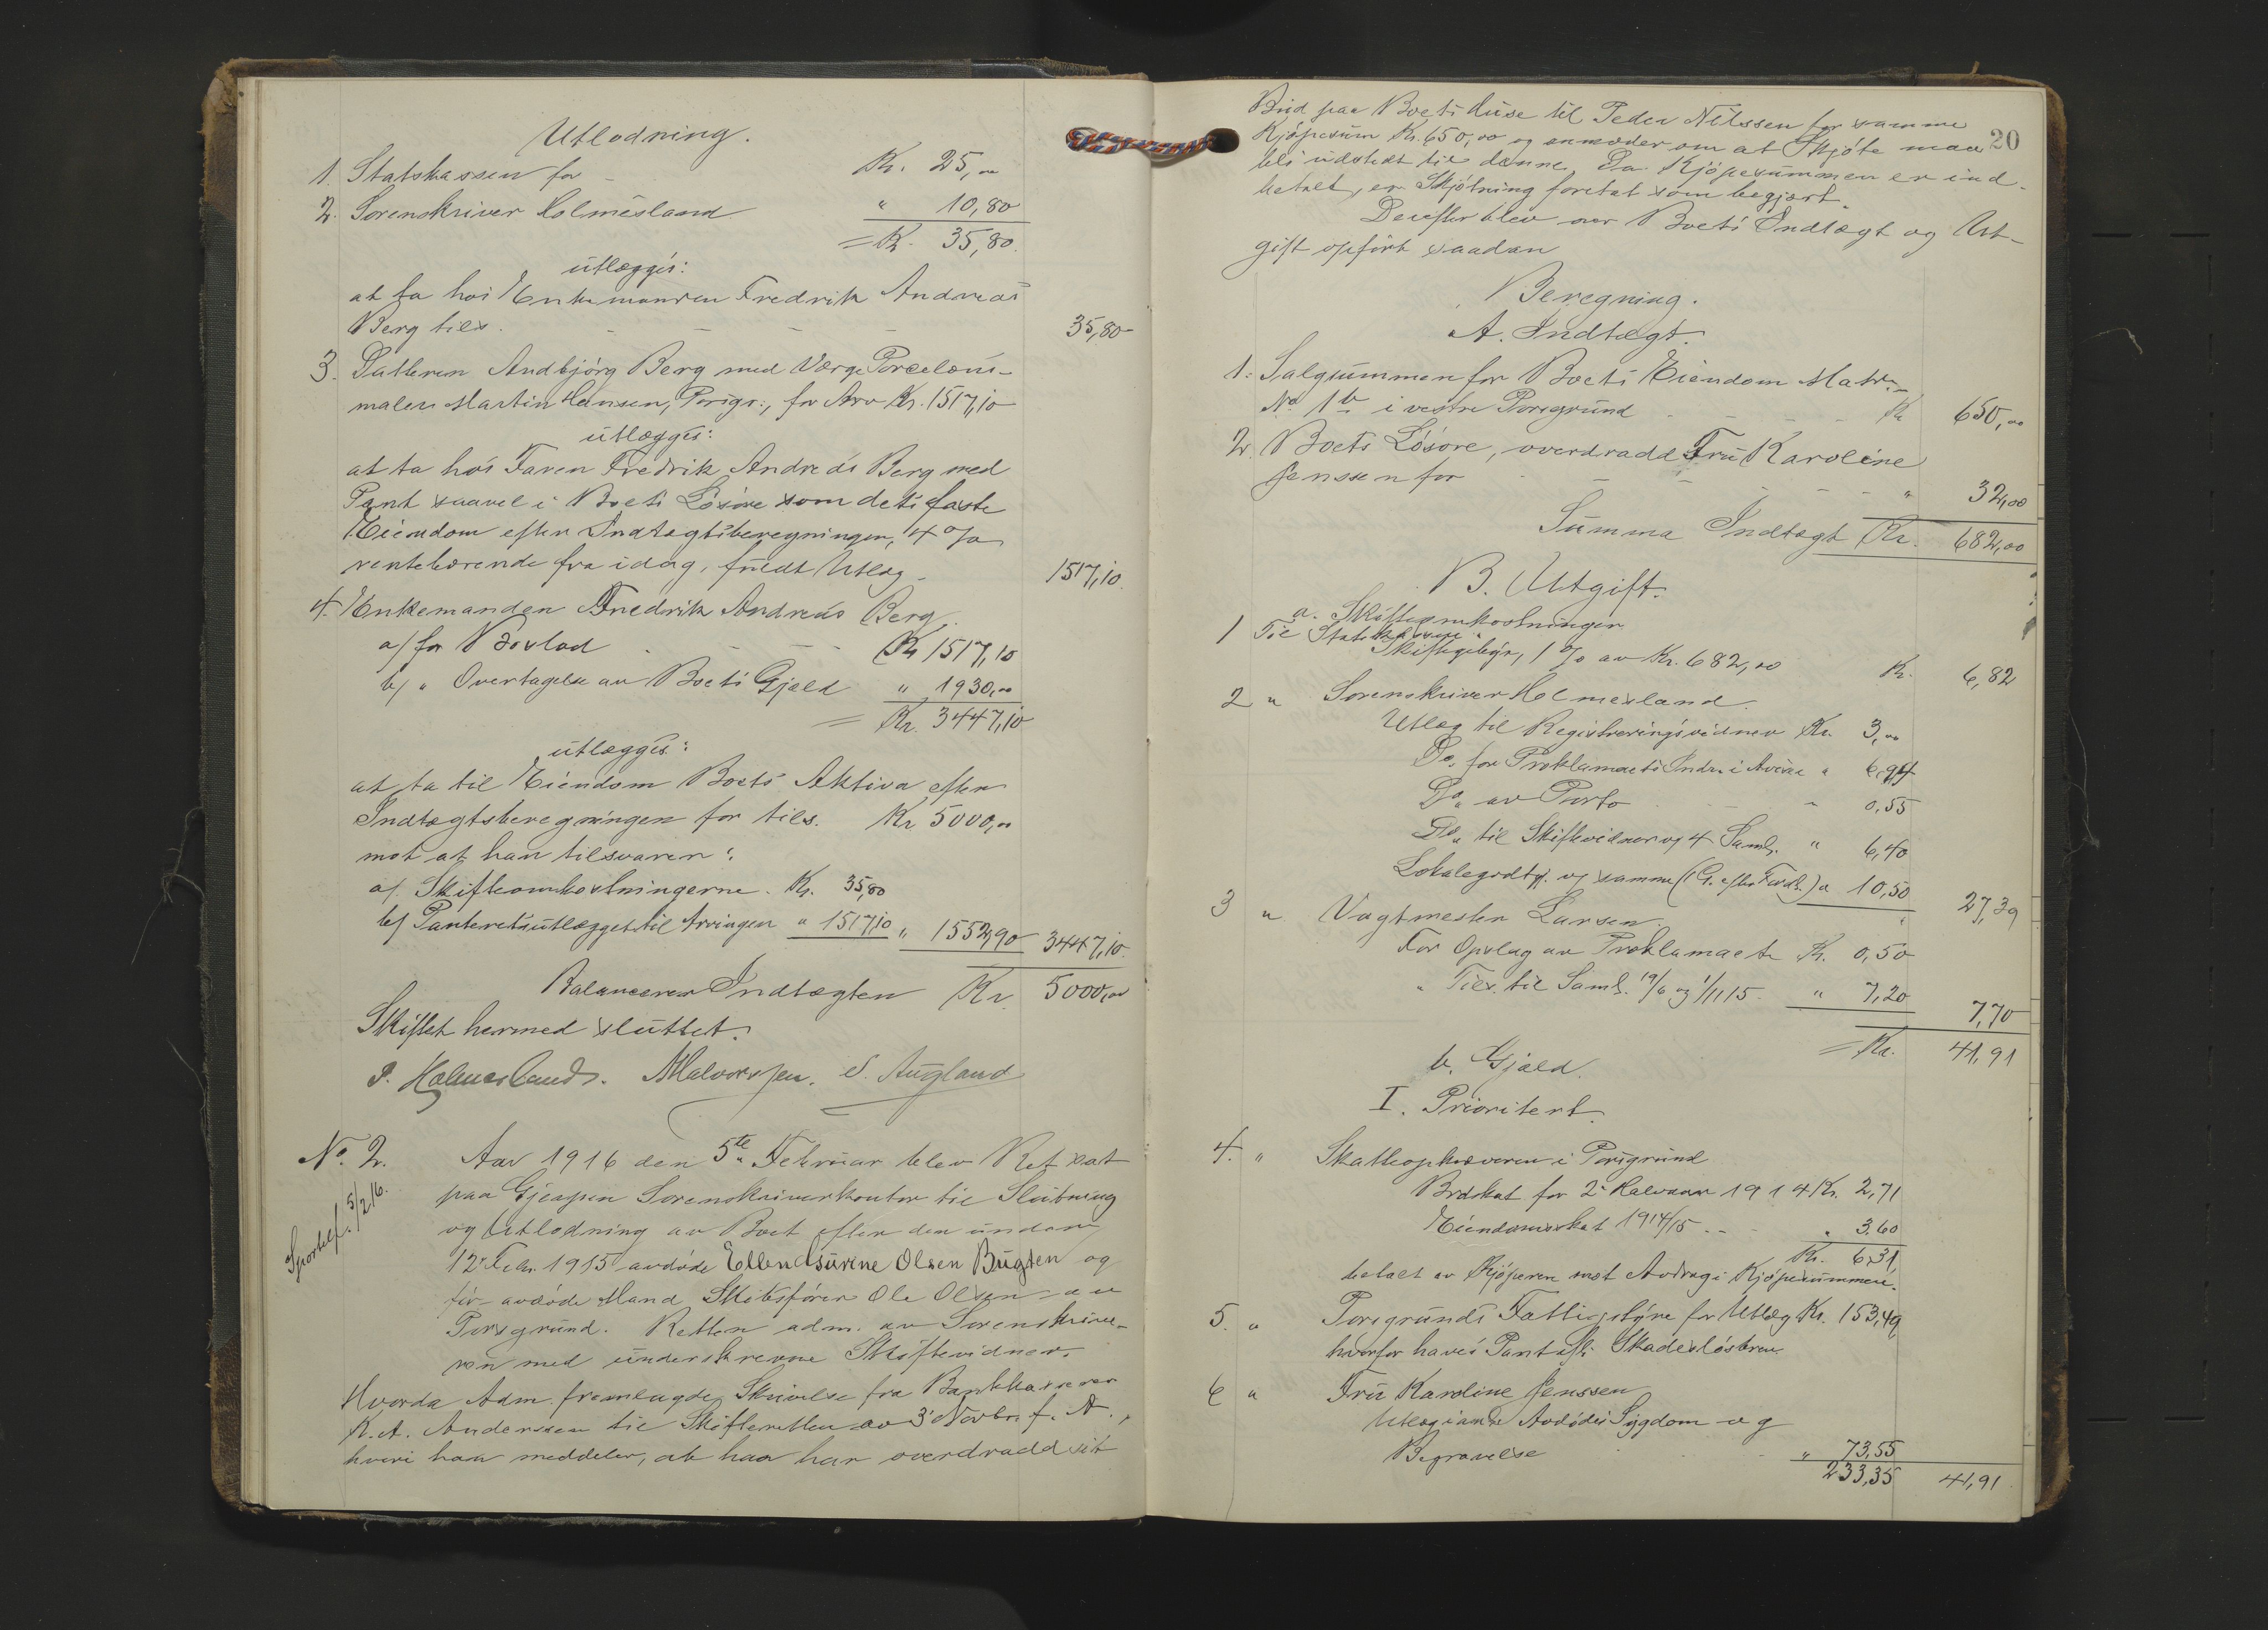 Utlodning.
1. Statskassen for Kr. 25,00
2. Sorenskriver Holmesland " 10,80
= Kr. 35,80.
utlægges:
at ta hos Enkemanden Fredrik Andreas
Berg tils. 35,80
3. Datteren Andbjörg Berg med Værge Porcelæns-
maler Martin Hansen, Porsgr., for Arv Kr. 1517,10
utlægges:
at ta hos Faren Fredrik Andreas Berg med
Pant saavel i Boets Lösöre som dets faste
Eiendom efter Indtægtsberegningen, 4 %
rentebærende fra idag, fuldt Utlæg 1517,10.
4. Enkemanden Fredrik Andreas Berg,
a/ for Boslod Kr 1517,10
b/ " Overtagelse av Boets Gjæld " 1930,00
= Kr. 3447,10
utlægges:
at ta til Eiendom Boets Aktiva efter
Indtægtsberegningen for tils. Kr 5000,00
mot at han tilsvarer:
a/ Skifteomkostningerne. Kr. 35,80
b/ Panteretsutlægget til Arvingen " 1517,10 " 1552,90 3447,10.
Balancerer Indtægten Kr. 5000,00
Skiftet hermed sluttet.
P. Holmesland. Halvorsen. S. Augland
No. 2. Aar 1916 den 5te Februar blev Ret sat
paa Gjerpen Sorenskriverkontor til Slutning
Sportelf. 5/2 16.
og Utlodning av Boet efter den under
12 Febr. 1915 avdöde Ellen Osurine Olsen Bugten og
før avdöde Mand Skibsförer Ole Olsen av
Porsgrund. Retten adm. av Sorenskrive-
ren med underskrevne Skiftevidner.
Hvorda Adm. fremlagde Skrivelse fra Bankkasserer
K. A. Anderssen til Skifteretten av 3 Novbr. f. A.,
hvori han meddeler, at han har overdradd sit
20
Bud paa Boets Huse til Peder Nilssen for samme
Kjöpesum Kr. 650,00 og anmoder om at Skjöte maa
bli utstedt til denne. Da Kjöpesummen er ind-
betalt, er Skjötning foretat som begjært.
Derefter blev over Boets Indtægt og Ut-
gift opfört saadan
Beregning.
A. Indtægt.
1. Salgsummen for Boets Eiendom Matr.-
No 1b i vestre Porsgrund Kr 650,00
2. Boets Lösöre, overdradd Fru Karoline
Jenssen for " 32,00
Summa Indtægt Kr. 682,00
B. Utgift.
a. Skifteomkostninger
1 Til Statskassen
Skiftegebyr, 1 % av Kr. 682,00 Kr. 6,82
2 " Sorenskriver Holmesland.
Utlæg til Registreringsvidner Kr. 3,00
Do. for Proklamaets Indr. i Aviser " 6,94
Do. av Porto " 0,55
Do. til Skiftevidner og 4 Saml. " 6,40
Lokalegodtgj. og samme (1 G. efter Fordl.) " 10,50 " 27,39
3 " Vagtmester Larsen.
For Opslag av Proklamaet Kr. 0,50
" Tils. til Saml. 19/6 og 1/11 15. " 7,20 7,70
= Kr. 41,91
b. Gjæld.
I. Prioritert.
4. " Skatteopkræveren i Porsgrund
Brdskat for 2 Halvaar 1914 Kr. 2,71
Eiendomsskat 1914/15 " 3.60
Kr. 6,31
betalt av Kjöperen mot Avdrag i Kjöpesummen.
5. " Porsgrunds Fattigstyre for Utlæg Kr. 153,49
hvorfor haves Pant ifl. Skadeslösbrev
6 " Fru Karoline Jenssen
Utlæg i Avdödes Sygdom og
Begravelse " 73,55
233,35 41,91